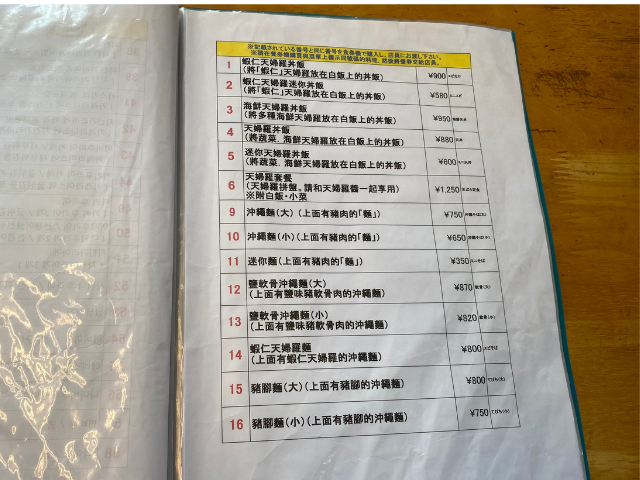 ※記載されている番号と同じ番号を食券機で購入し、店員にお渡し下さい。
※請在餐券機購買與菜單上標示同號碼的料理,然後將餐券交給店員。
1 蝦仁天婦羅丼飯
(將「蝦仁」天婦羅放在白飯上的丼飯) ¥900
2 蝦仁天婦羅迷你丼飯
(將「蝦仁」天婦羅放在白飯上的丼飯) ¥580
3 海鮮天婦羅丼飯
(將多種海鮮天婦羅放在白飯上的丼飯) ¥950
4 天婦羅丼飯
(將蔬菜.海鮮天婦羅放在白飯上的丼飯) ¥880
5 迷你天婦羅丼飯
(將蔬菜.海鮮天婦羅放在白飯上的丼飯) ¥600
6 天婦羅套餐
(天婦羅拼盤。請和天婦羅醬一起享用)
※附白飯・小菜 ¥1,250
9 沖繩麵(大)(上面有豬肉的「麵」) ¥750
10 沖繩麵(小)(上面有豬肉的「麵」) ¥650
11 迷你麵(上面有豬肉的「麵」) ¥350
12 鹽軟骨沖繩麵(大)
(上面有鹽味豬軟骨肉的沖繩麵) ¥870 軟骨(大)
13 鹽軟骨沖繩麵(小)
(上面有鹽味豬軟骨肉的沖繩麵) ¥820 軟骨(小)
14 蝦仁天婦羅麵
(上面有蝦仁天婦羅的沖繩麵) ¥800 エビそば
15 豬腳麵(大)(上面有豬腳的沖繩麵) ¥800 てびち(大)
16 豬腳麵(小)(上面有豬腳的沖繩麵) ¥750 てびち(小)